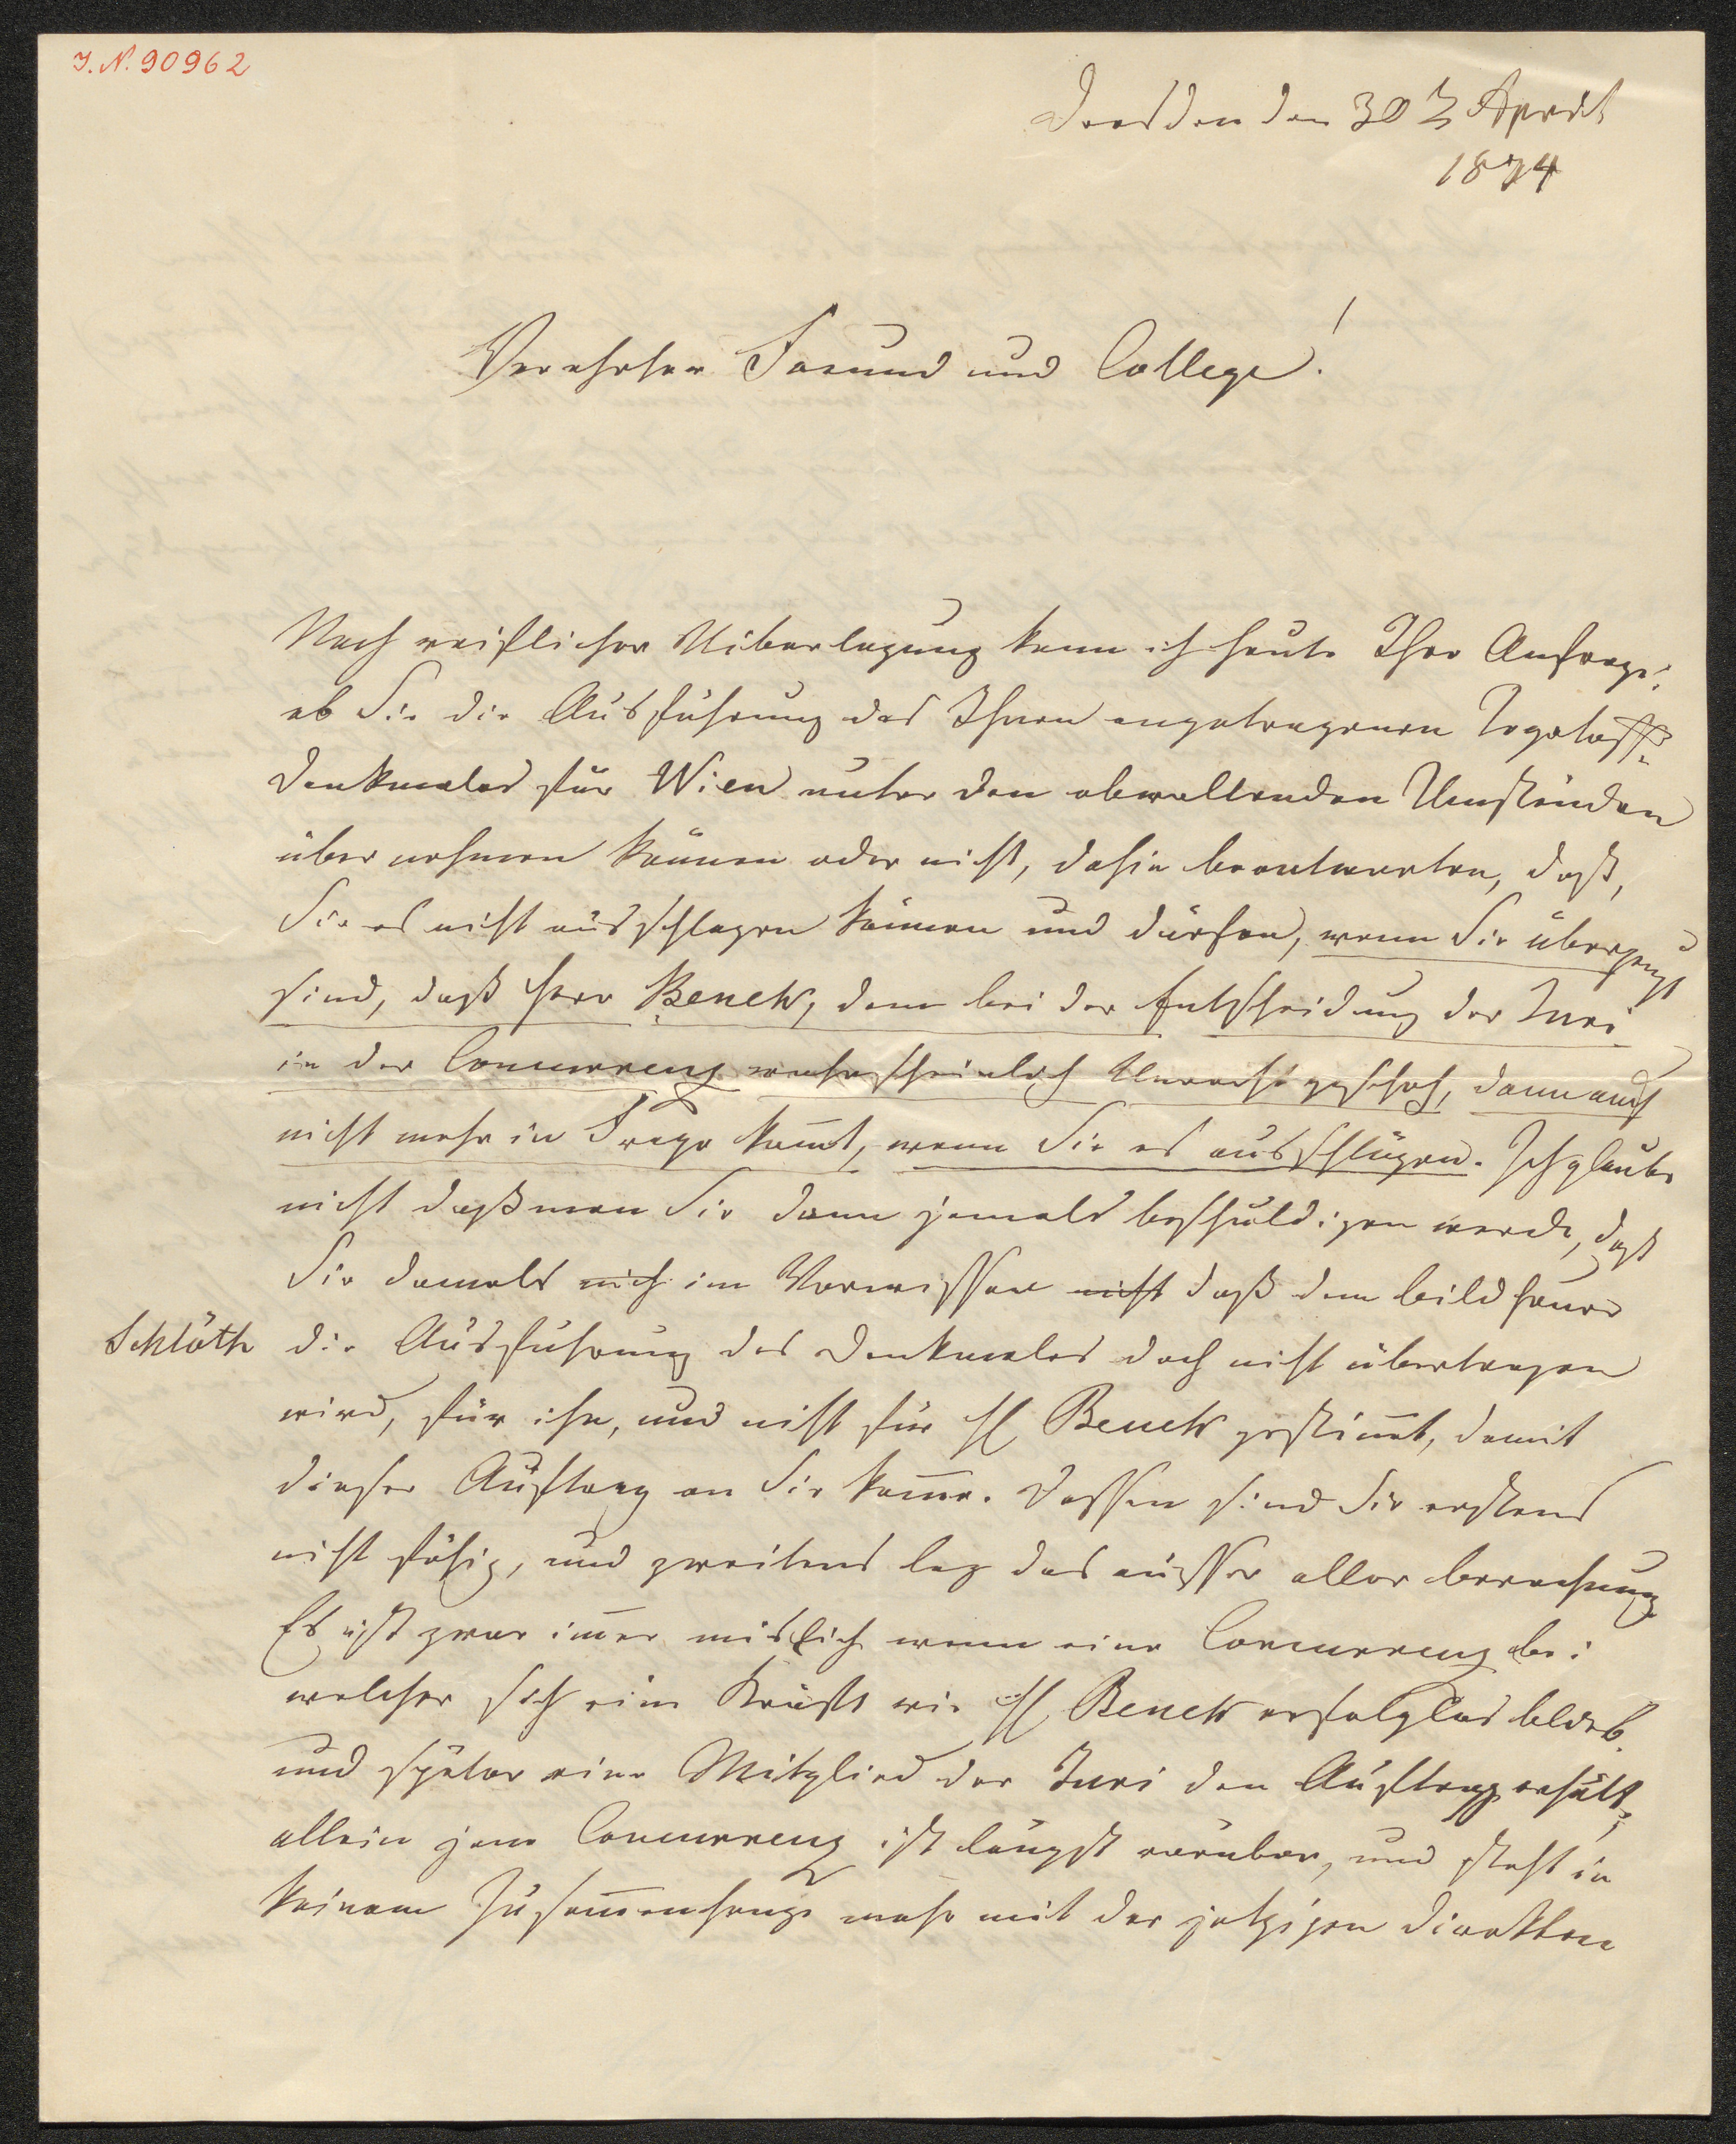 I. N. 90962
Dresden den 30 April
1874
Verehrter Freund und College!
Nach reiflicher Uiberlegung kann ich heute Ihre Anfrage:
ob Sie die Ausführung des Ihnen angetragenen Tegetoff-
Denkmales für Wien unter den obwaltenden Umständen
übernehmen können oder nicht, dahin beantworten, daß,
Sie es nicht ausschlagen können und dürfen, wenn Sie überzeugt
sind, daß Herr Benek, dem bei der Entscheidung der Juri
in der Concurrenz wahrscheinlich Unrecht geschah, dann auch
nicht mehr in Frage kom̄t, wenn Sie es ausschlügen. Ich glaube
nicht daß man Sie dann jemals beschuldigen werde, daß
Sie damals nich im Vorwissen nicht daß dem Bildhauer
Schlöth die Ausführung des Denkmales doch nicht übertragen
wird, für ihn, und nicht für H Benek gestim̄t, damit
dieser Auftrag an Sie kom̄e. Dessen sind Sie erstens
nicht fähig, und zweitens lag das ausser aller Berechnung
Es ist zwar im̄er mislich wenn eine Concurrenz bei
welcher sich eine Kraft wie H Benek erfolglos blieb
und später eine Mitglied der Juri den Auftrag erhält,
allein jene Concurrenz ist längst vorüber, und steht in
keinem Zusam̄enhange mehr mit der jetzigen direkten